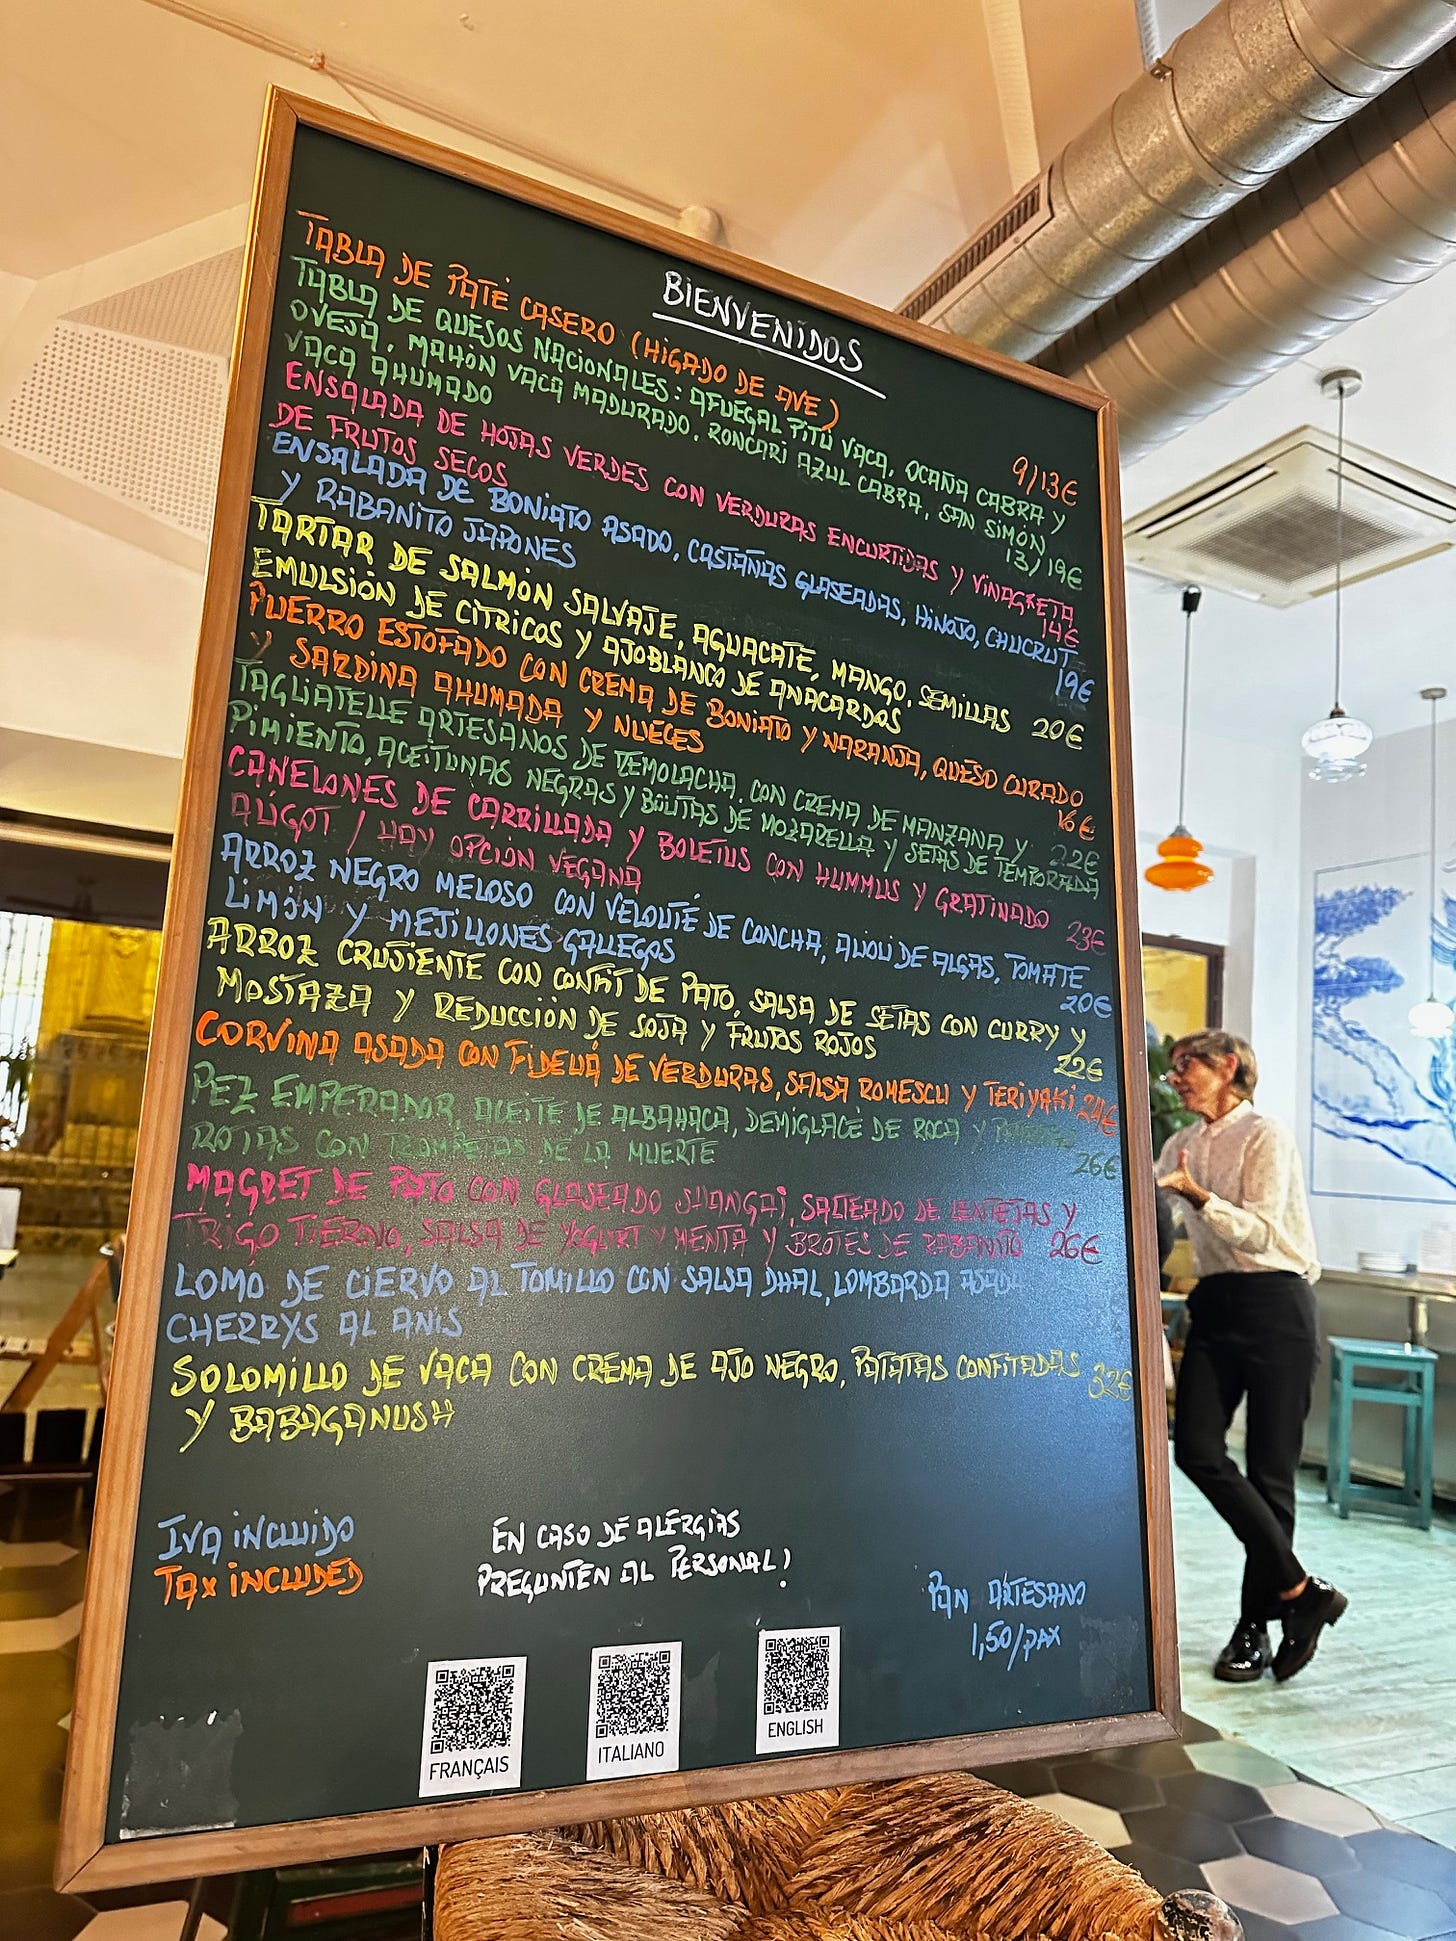 BIENVENIDOS
TABLA DE PATÉ CASERO (HIGADO DE AVE) 9/13€
TABLA DE QUESOS NACIONALES: AFUEGAL PITU VACA, OCAÑA CABRA Y
OVEJA, MAHON VACA MADURADO, RONCARI AZUL CABRA, SAN SIMON
VACA AHUMADO 13/19€
ENSALADA DE HOJAS VERDES CON VERDURAS ENCURTIDAS Y VINAGRETA
DE FRUTOS SECOS 14€
ENSALADA DE BONIATO ASADO, CASTAÑAS GLASEADAS, HINOJO, CHUCRUT
Y RABANITO JAPONES 19€
TARTAR DE SALMÓN SALVAJE, AGUACATE, MANGO, SEMILLAS 20€
EMULSIÓN DE CITRICOS Y AJOBLANCO DE ANACARDOS
PUERRO ESTOFADO CON CREMA DE BONIATO Y NARANJA, QUESO CURADO
Y SARDINA AHUMADA Y NUECES 16€
TAGLIATELLE ARTESANOS DE REMOLACHA, CON CREMA DE MANZANA Y 22€
PIMIENTO, ACEITUNAS NEGRAS Y BOLITAS DE MOZARELLA Y SETAS DE TEMPORADA
CANELONES DE CARRILLADA Y BOLETUS CON HUMMUS Y GRATINADO 23€
ALIGOT / HAY OPCIÓN VEGANA
ARROZ NEGRO MELOSO CON VELOUTÉ DE CONCHA, ALIOLI DE ALGAS, TOMATE
LIMÓN Y MEJILLONES GALLEGOS 20€
ARROZ CRUJIENTE CON CONFIT DE PATO, SALSA DE SETAS CON CURRY Y
MOSTAZA Y REDUCCIÓN DE SOJA Y FRUTOS ROJOS 22€
CORVINA ASADA CON FIDEUÁ DE VERDURAS, SALSA ROMESCU Y TERIYAKI 24€
PEZ EMPERADOR, ACEITE DE ALBAHACA, DEMIGLACÉ DE ROCA Y
ROTAS CON TROMPETAS DE LA MUERTE 26€
MAGRET DE PATO CON GLASEADO SHANGAI, SALTEADO DE LENTEJAS Y
TRIGO TIERNO, SALSA DE YOGURT Y MENTA Y BROTES DE RABANITO 26€
LOMO DE CIERVO AL TOMILLO CON SALSA DHAL, LOMBARDA ASADA
CHERRYS AL ANIS
SOLOMILLO DE VACA CON CREMA DE AJO NEGRO, PATATAS CONFITADAS 32€
Y BABAGANUSH
IVA INCLUIDO
TAX INCLUDED
EN CASO DE ALERGIAS
PREGUNTEN AL PERSONAL!
PAN ARTESANO
1,50/PAX
FRANÇAIS
ITALIANO
ENGLISH